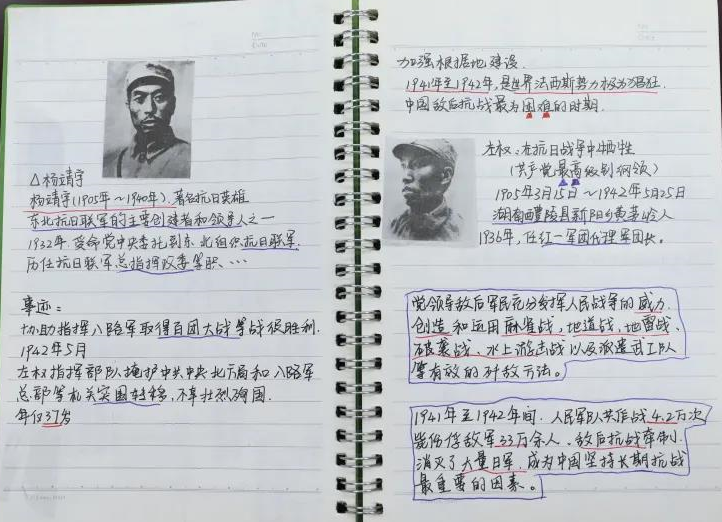 △杨靖宇
杨靖宇(1905年~1940年),著名抗日英雄
东北抗日联军的主要创建者和领导人之一
1932年,受命党中央委托到东北组织抗日联军,
历任抗日联军总指挥政委等职、…
事迹:
协助指挥八路军取得百团大战等战役胜利.
1942年5月
左权指挥部队掩护中共中央北方局和八路军
总部等机关突围转移,不幸壮烈殉国.
年仅37岁
加强根据地建设.
1941年至1942年,是世界法西斯势力极为猖狂.
中国敌后抗战最为困难的时期.
左权:在抗日战争中牺牲
(共产党最高级别
1905年3月15日~1942年5月25日
湖南醴陵县新阳乡黄茅岭人
1936年,任红一军团代理军团长。
党领导敌后军民充分发挥人民战争的威力.
创造和运用麻雀战,地道战,地雷战、
破袭战、水上游击战以及派遣武工队
等有效的歼敌方法。
1941年至1942年间.人民军队共作战4.2万次
毙伤俘敌军33万余人、敌后抗战牵制.
消灭了大量日军.成为中国坚持长期抗战
最重要的因素。